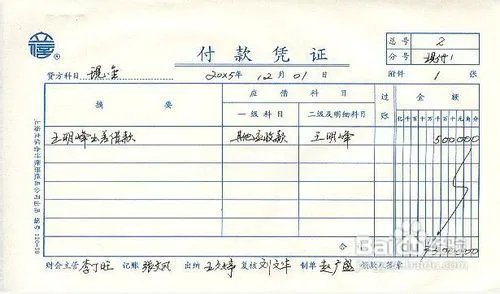 总号 2
付款凭证
分号 现付1
贷方科目 现金 20X5年12月01日 附件 1 张
摘要 应借科目 过账 金额
一级科目 二级及明细科目 亿千百十万千百十元角分
王明峰出差借款 其他应收款 王明峰 500000
合计
财会主管 李丁旺 记账 张文凤 出纳 王文婷 复核 刘文华 制单 赵广盛 领款人签章
Baidu经验